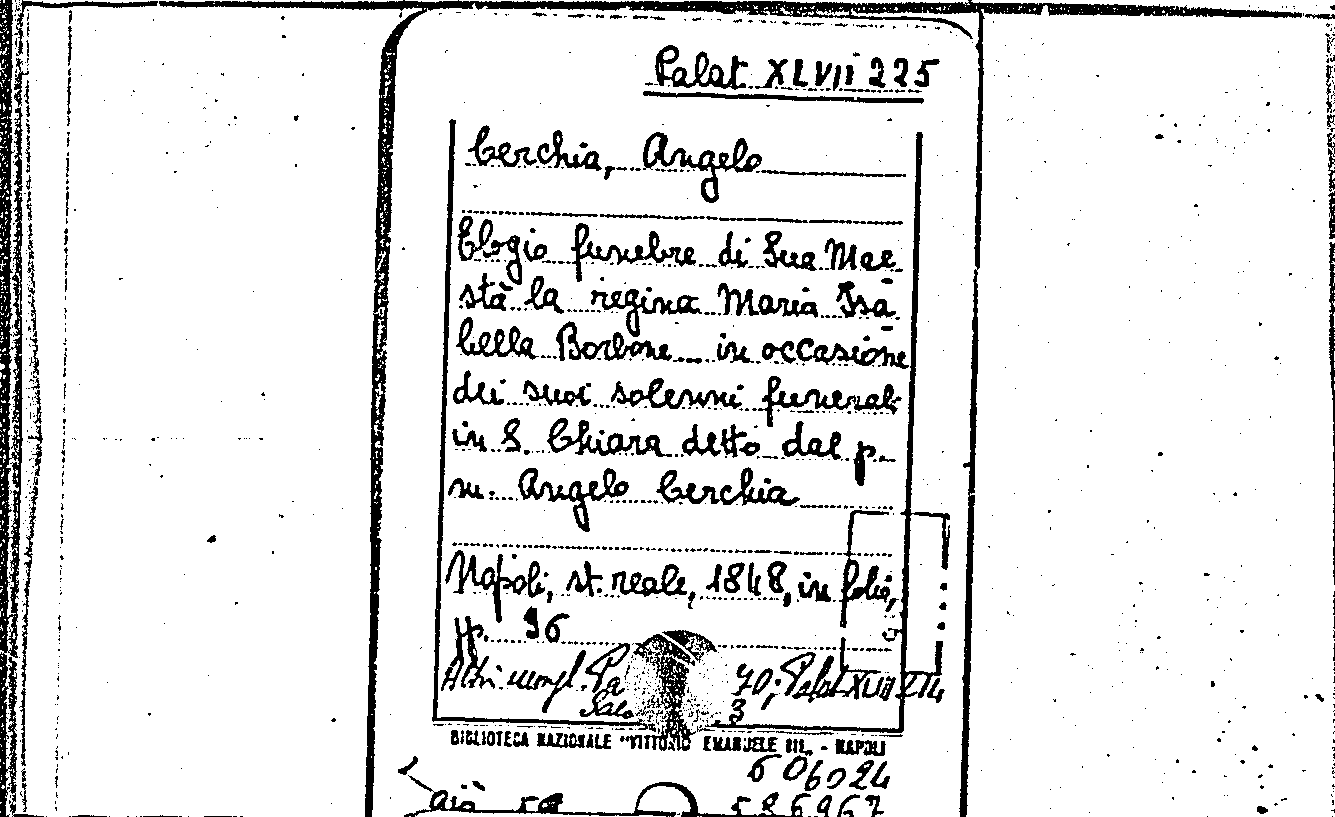 Palat XLVII 225
Cerchia, Angelo
Elogio funebre di Sua Mae-
stà la regina Maria Isa-
bella Borbone ... in occasione
dei suoi solenni funerali
in S. Chiara detto dal p.
m. Angelo Cerchia
Napoli, st. reale, 1848, in folio,
pp. 36
Altri 70; Palat
3
BIBLIOTECA NAZIONALE "VITTORIO EMANUELE III" - NAPOLI
606024
già 586967